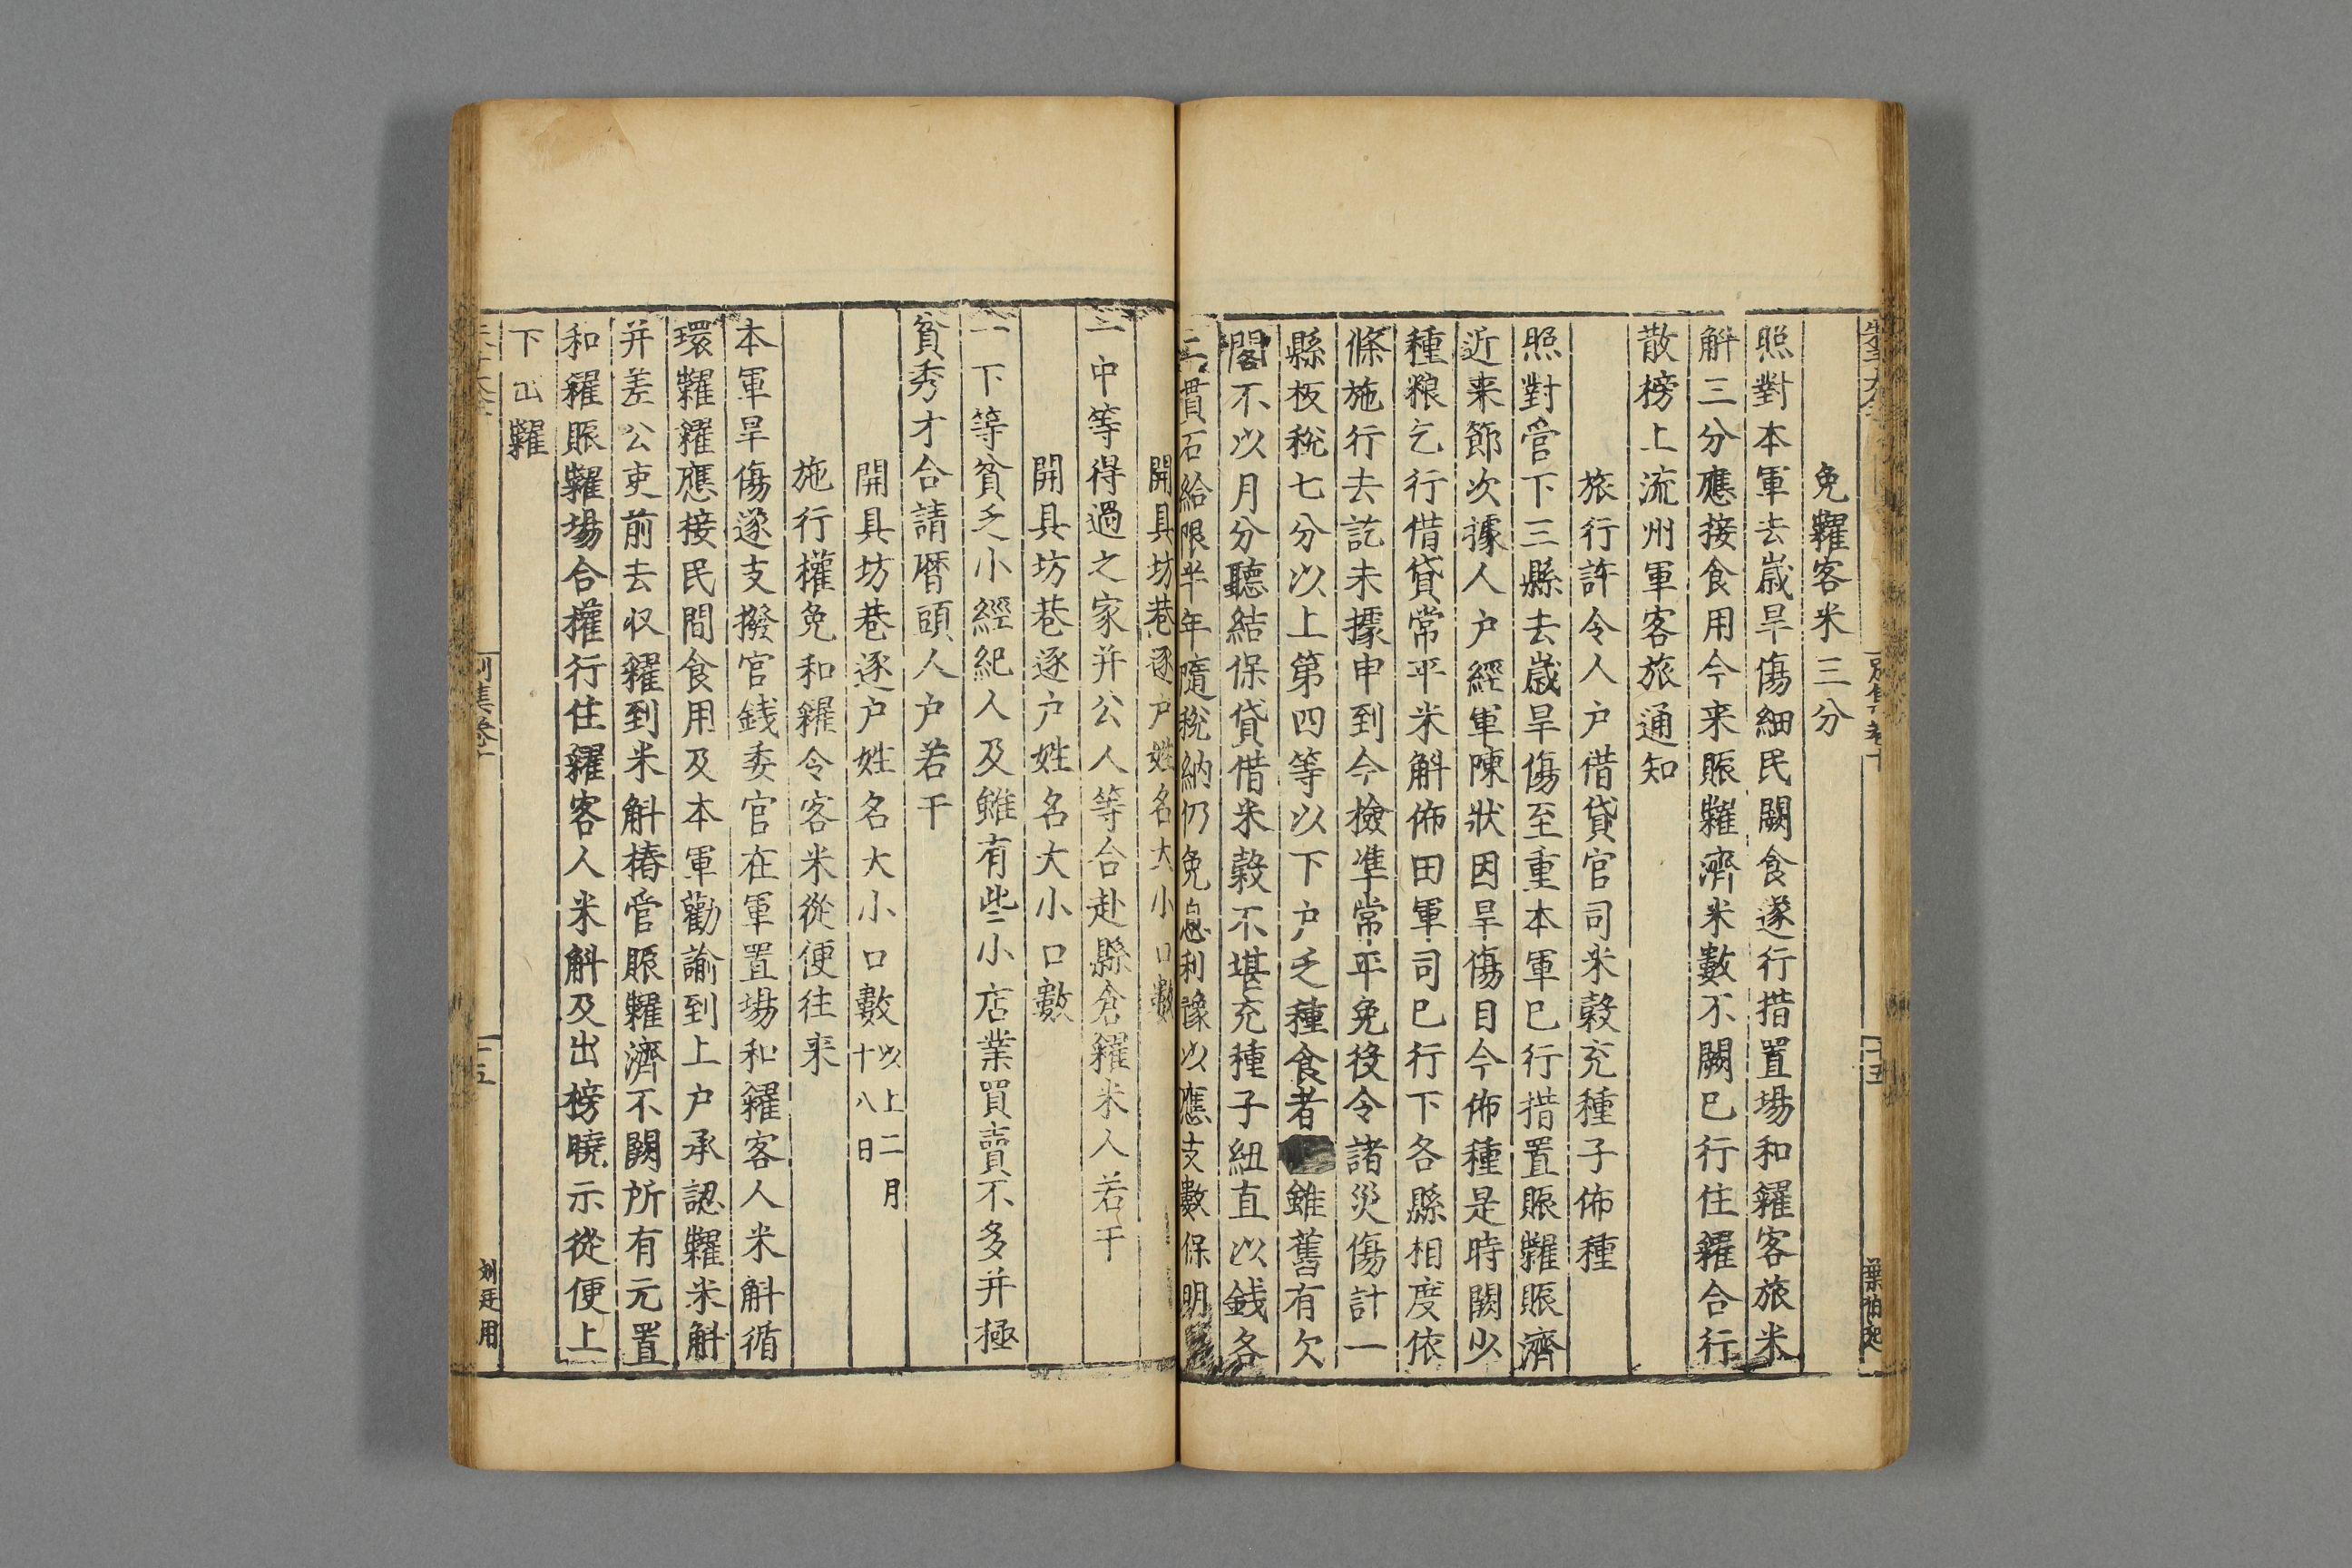 免糶客米三分
照對本軍去歲旱傷細民闕食遂行措置場和糴客旅米
斛三分應接食用今来賑糶濟米數不闕巳行住糴合行
散榜上流州軍客旅通知
旅行許令人户借貸官司米穀充種子佈種
照對管下三縣去歲旱傷至重本軍巳行措置賑糶賑濟
近来節次據人户經軍陳狀因旱傷目今佈種是時闕少
種粮乞行借貸常平米斛佈田軍司巳行下各縣相度依
條施行去訖未據申到今檢準常平免役令諸災傷計一
縣板稅七分以上第四等以下户乏種食者雖舊有欠
閣不以月分聽結保貸借米穀不堪充種子紐直以銭各
貫石給限半年隨稅納仍免息利豫以應支數保明
開具坊巷逐户姓名大小口數
一中等得過之家并公人等合赴縣倉糴米人若干
開具坊巷逐户姓名大小口數
一下等貧乏小經紀人及雖有些小店業買賣不多并極
貧秀才合請曆頭人户若干
開具坊巷逐户姓名大小口數以上二月十八日
施行權免和糴令客米從便往来
本軍旱傷遂支撥官銭委官在軍置場和糴客人米斛循
環糶糴應接民間食用及本軍勸諭到上户承認糶米斛
并差公吏前去収糴到米斛樁管賑糶濟不闕所有元置
和糴賑糶場合權行住糴客人米斛及出榜曉示從便上
下出糶
别集卷十
十五
刘廷用